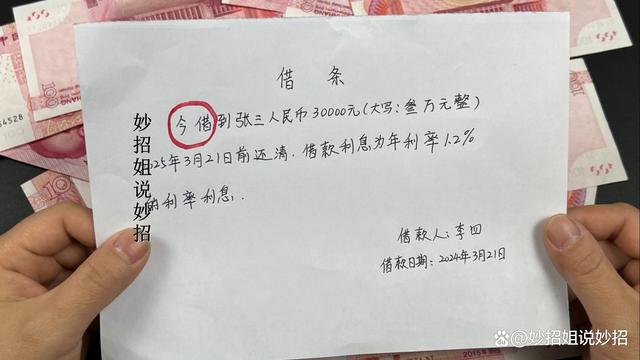 借条
今借到张三人民币30000元(大写:叁万元整)
025年3月21日前还清.借款利息为年利率1.2%
的利率利息.
借款人:李四
借款日期:2024年3月21日
妙招姐说妙招
4528
100
2015年
@妙招姐说妙招